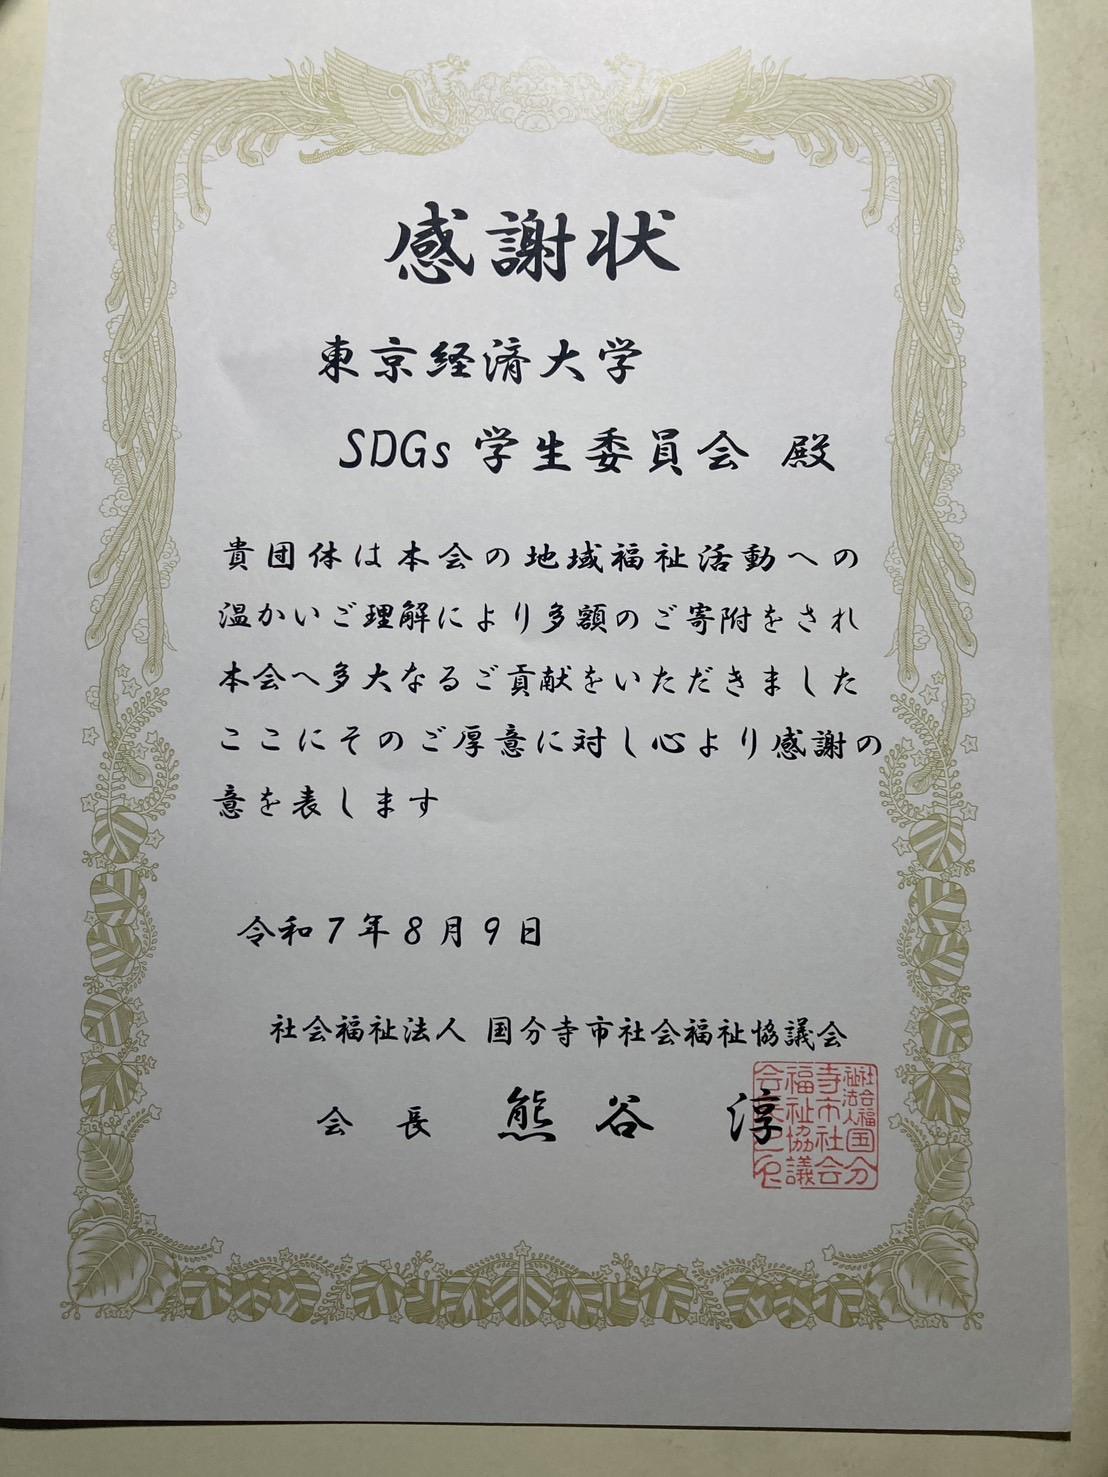 感謝状
東京経済大学
SDGs 学生委員会 殿
貴団体は本会の地域福祉活動への
温かいご理解により多額のご寄附をされ
本会へ多大なるご貢献をいただきました
ここにそのご厚意に対し心より感謝の
意を表します
令和7年8月9日
社会福祉法人 国分寺市社会福祉協議会
会長 熊谷 淳
社会福
祉法人国分
寺市社会
福祉協議
会長之印